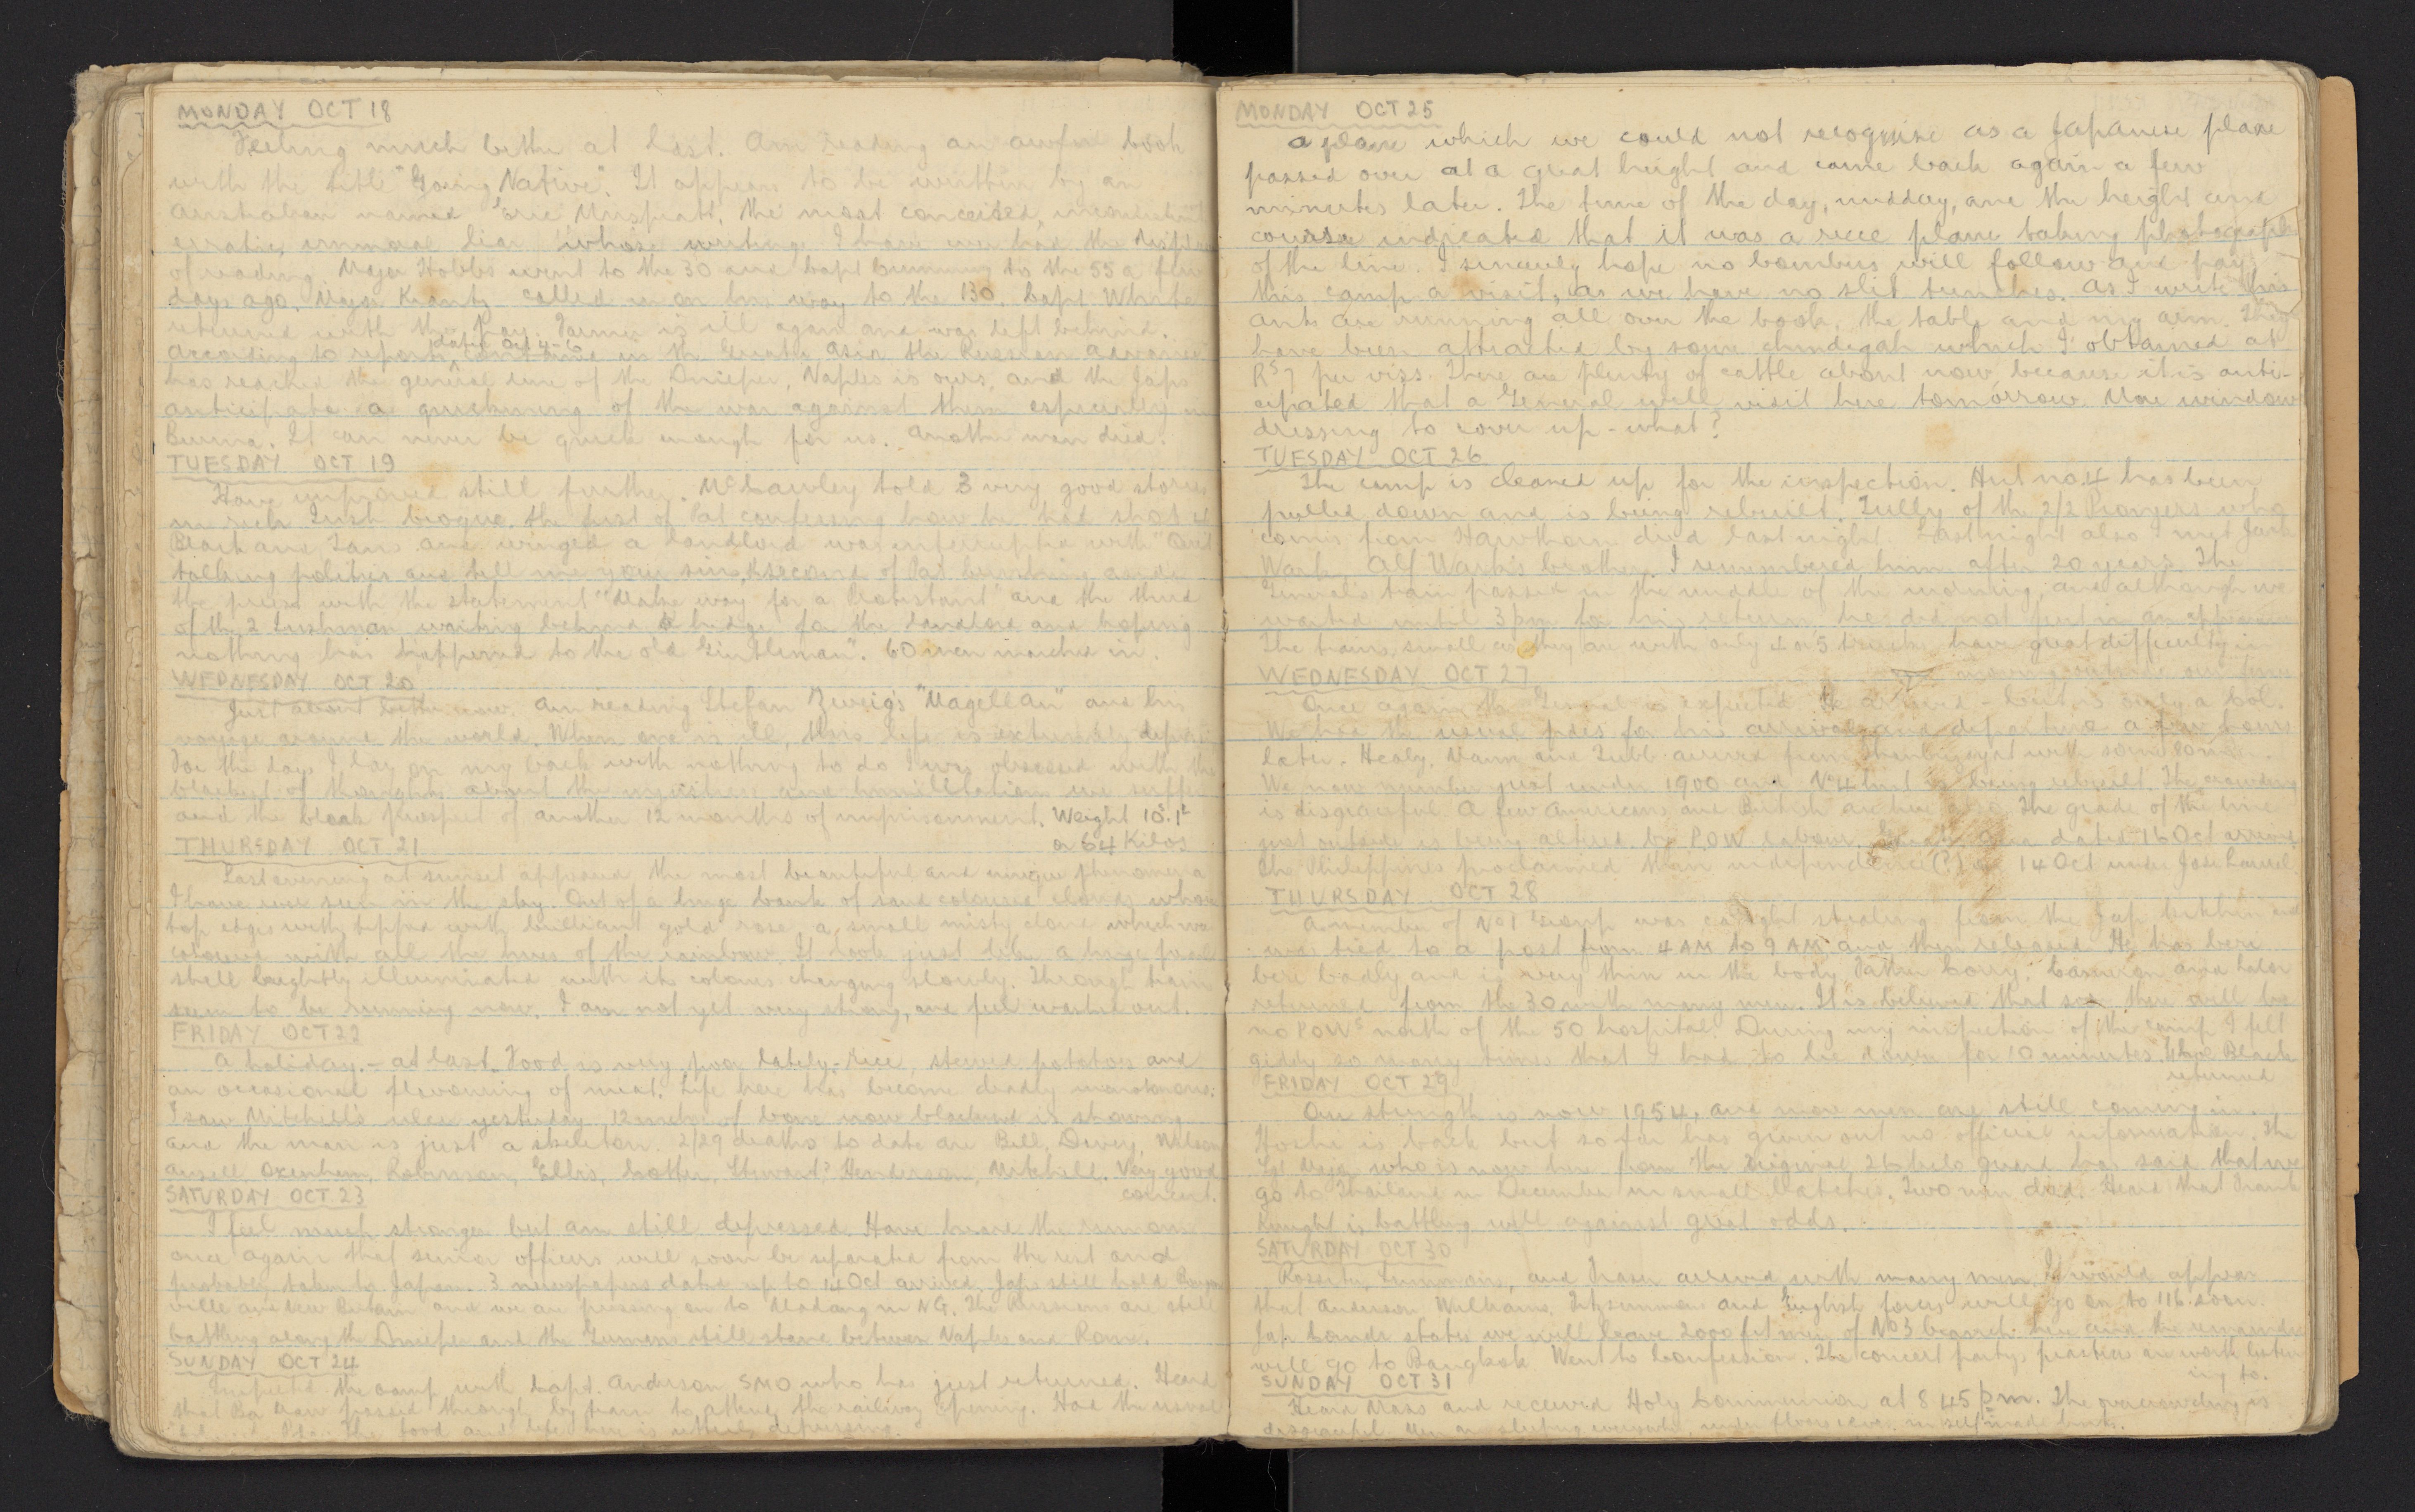 MONDAY OCT 18
Feeling much better at last. Am reading an awful book
with the title "Going Native". It appears to be written by an
Australian named Eric Muspratt, the most conceited,
erratic, immoral liar whose writings I have ever had the
of reading. Major Hobbs went to the 30 and Capt Cumming to the 55 a few
days ago. Major Krantz called in on his way to the 130. Capt White
returned with the pay. Farmer is ill again and was left behind.
According to reports dated Oct 4-6 in the Greater Asia the Russian advance
has reached the general line of the Dnieper, Naples is ours, and the Japs
anticipate a quickening of the war against them especially in
Burma. It can never be quick enough for us. Another man died.
TUESDAY OCT 19
Have improved still further. McCawley told 3 very good stories
in rich Irish brogue. The first of Pat confessing how he had shot 4
Black and Tans and winged a landlord was interrupted with "Quit
talking politics and tell me your sins", the second of Pat brushing aside
the priest with the statement "Make way for a Protestant" and the third
of the 2 Irishmen waiting behind a hedge for the landlord and hoping
nothing has happened to the "old Gintleman". 60 men marched in.
WEDNESDAY OCT 20
Just about better now. Am reading Stefan Zweig's "Magellan" and his
voyage around the world. When one is ill, this life is extremely
For the days I lay on my back with nothing to do I was obsessed with the
blackest of thoughts about the injustices and humiliation we suffer
and the bleak prospect of another 12 months of imprisonment. Weight 10s. 1l
or 64 Kilos
THURSDAY OCT 21
Last evening at sunset appeared the most beautiful and unique phenomena
I have ever seen in the sky. Out of a huge bank of sand coloured clouds whose
top edges were tipped with brilliant gold rose a small misty cloud which was
coloured with all the hues of the rainbow. It looked just like a huge pearl
shell brightly illuminated with its colours changing slowly. Through trains
seem to be running now. I am not yet very strong, and feel washed out.
FRIDAY OCT 22
A holiday - at last. Food is very poor lately, - Rice, stewed potatoes and
an occasional flavouring of meat. Life here has become deadly monotonous.
I saw Mitchell's ulcer yesterday, 12 inches of bone now blackened is showing
and the man is just a skeleton. 2/29 deaths to date are Bell, Dewey, Wilson
Ansell, Oxenham, Robinson, Ellis, Cotter, Steward? Henderson, Mitchell. Very good
concert.
SATURDAY OCT 23
I feel much stronger but am still depressed. Have heard the rumour
once again that senior officers will soon be separated from the rest and
probably taken to Japan. 3 newspapers dated up to 14 Oct arrived. Japs still hold
ville and New Britain and we are pressing on to Madang in NG. The Russians are still
battling along the Dnieper and the Germans still stand between Naples and Rome.
SUNDAY OCT 24
Inspected the camp with Capt. Anderson SMO who has just returned. Heard
that Ba Maw passed through by train to attend the railway opening. Had the usual
The food and life here is utterly depressing.
MONDAY OCT 25
A plane which we could not recognise as a Japanese plane
passed over at a great height and came back again a few
minutes later. The time of the day, midday, and the height and
course indicated that it was a recce plane taking photographs
of the line. I sincerely hope no bombers will follow and pay
this camp a visit, as we have no slit trenches. As I write this
ants are running all over the book, the table and my arm. They
have been attracted by some chindegah which I obtained at
Rs 7 per viss. There are plenty of cattle about now because it is anti-
cipated that a General will visit here tomorrow. More window
dressing to cover up - what?
TUESDAY OCT 26
The camp is cleaned up for the inspection. Hut no.4 has been
pulled down and is being rebuilt. Tully of the 2/2 Pioneers who
comes from Hawthorn died last night. Last night also I met Jack
Wark, Alf Wark's brother. I remembered him after 20 years. The
General's train passed in the middle of the morning, and although we
waited until 3 pm for his return he did not put in an appearance
The trains, small as they are with only 4 or 5 trucks, have great difficulty in
moving outside our lines
WEDNESDAY OCT 27
Once again the General is expected. He arrived - but is only a Col.
We had the usual for his arrival and departure a few hours
later. Healy, Mann and Tubb arrived from Thanbyuzayat with some
We now number just under 1900 and No 4 hut is being rebuilt. The crowding
is disgraceful. A few Americans and British are here also. The grade of the line
just outside is being altered by P.O.W labour. Greater Asia dated 16 Oct arrived
The Philippines proclaimed their independence (?) on 14 Oct under Jose Laurel
THURSDAY OCT 28
A member of No 1 Group was caught stealing from the Jap kitchen and
was tied to a post from 4 AM to 9 AM and then released. He has beri
beri badly and is very thin in the body. Father Corry, Cameron and
returned from the 30 with many men. It is believed that soon there will be
no POWs north of the 50 hospital. During my inspection of the camp I felt
giddy so many times that I had to lie down for 10 minutes. Black
returned
FRIDAY OCT 29
Our strength is now 1954, and more men are still coming in.
Hoshi is back but so far has given out no official information. The
who is now here from the original 26 kilo guard has said that we
go to Thailand in December in small batches. Two men died. Heard that Frank
Knight is battling well against great odds.
SATURDAY OCT 30
and Fraser arrived with many men. It would appear
that Anderson, Williams, Fitzsimmons and English forces will go on to 116 soon.
Jap Comdr states we will leave 2000 fit men of No 3 Branch here and the remainder
will go to Bangkok. Went to Confession. The concert party practices are worth listen
ing to.
SUNDAY OCT 31
Heard Mass and received Holy Communion at 8 45 pm. The overcrowding is
disgraceful. Men are sleeping everywhere, under floors